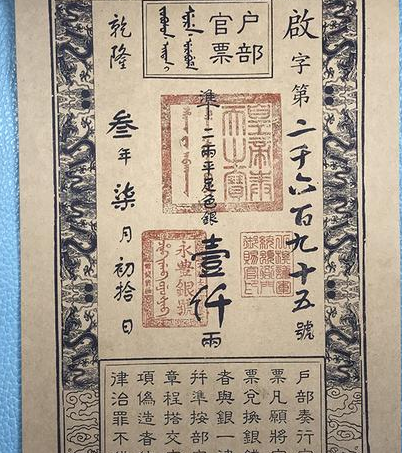 啟字第二千六百九十五號
户部
官票
準二兩平足色銀壹仟兩
乾隆叁年柒月初拾日
皇帝奉
天之寶
永豐銀號
户部奏行
票凡願將
票兌換銀
者與銀一
幷準按部
章程搭交
項偽造者
律治罪不